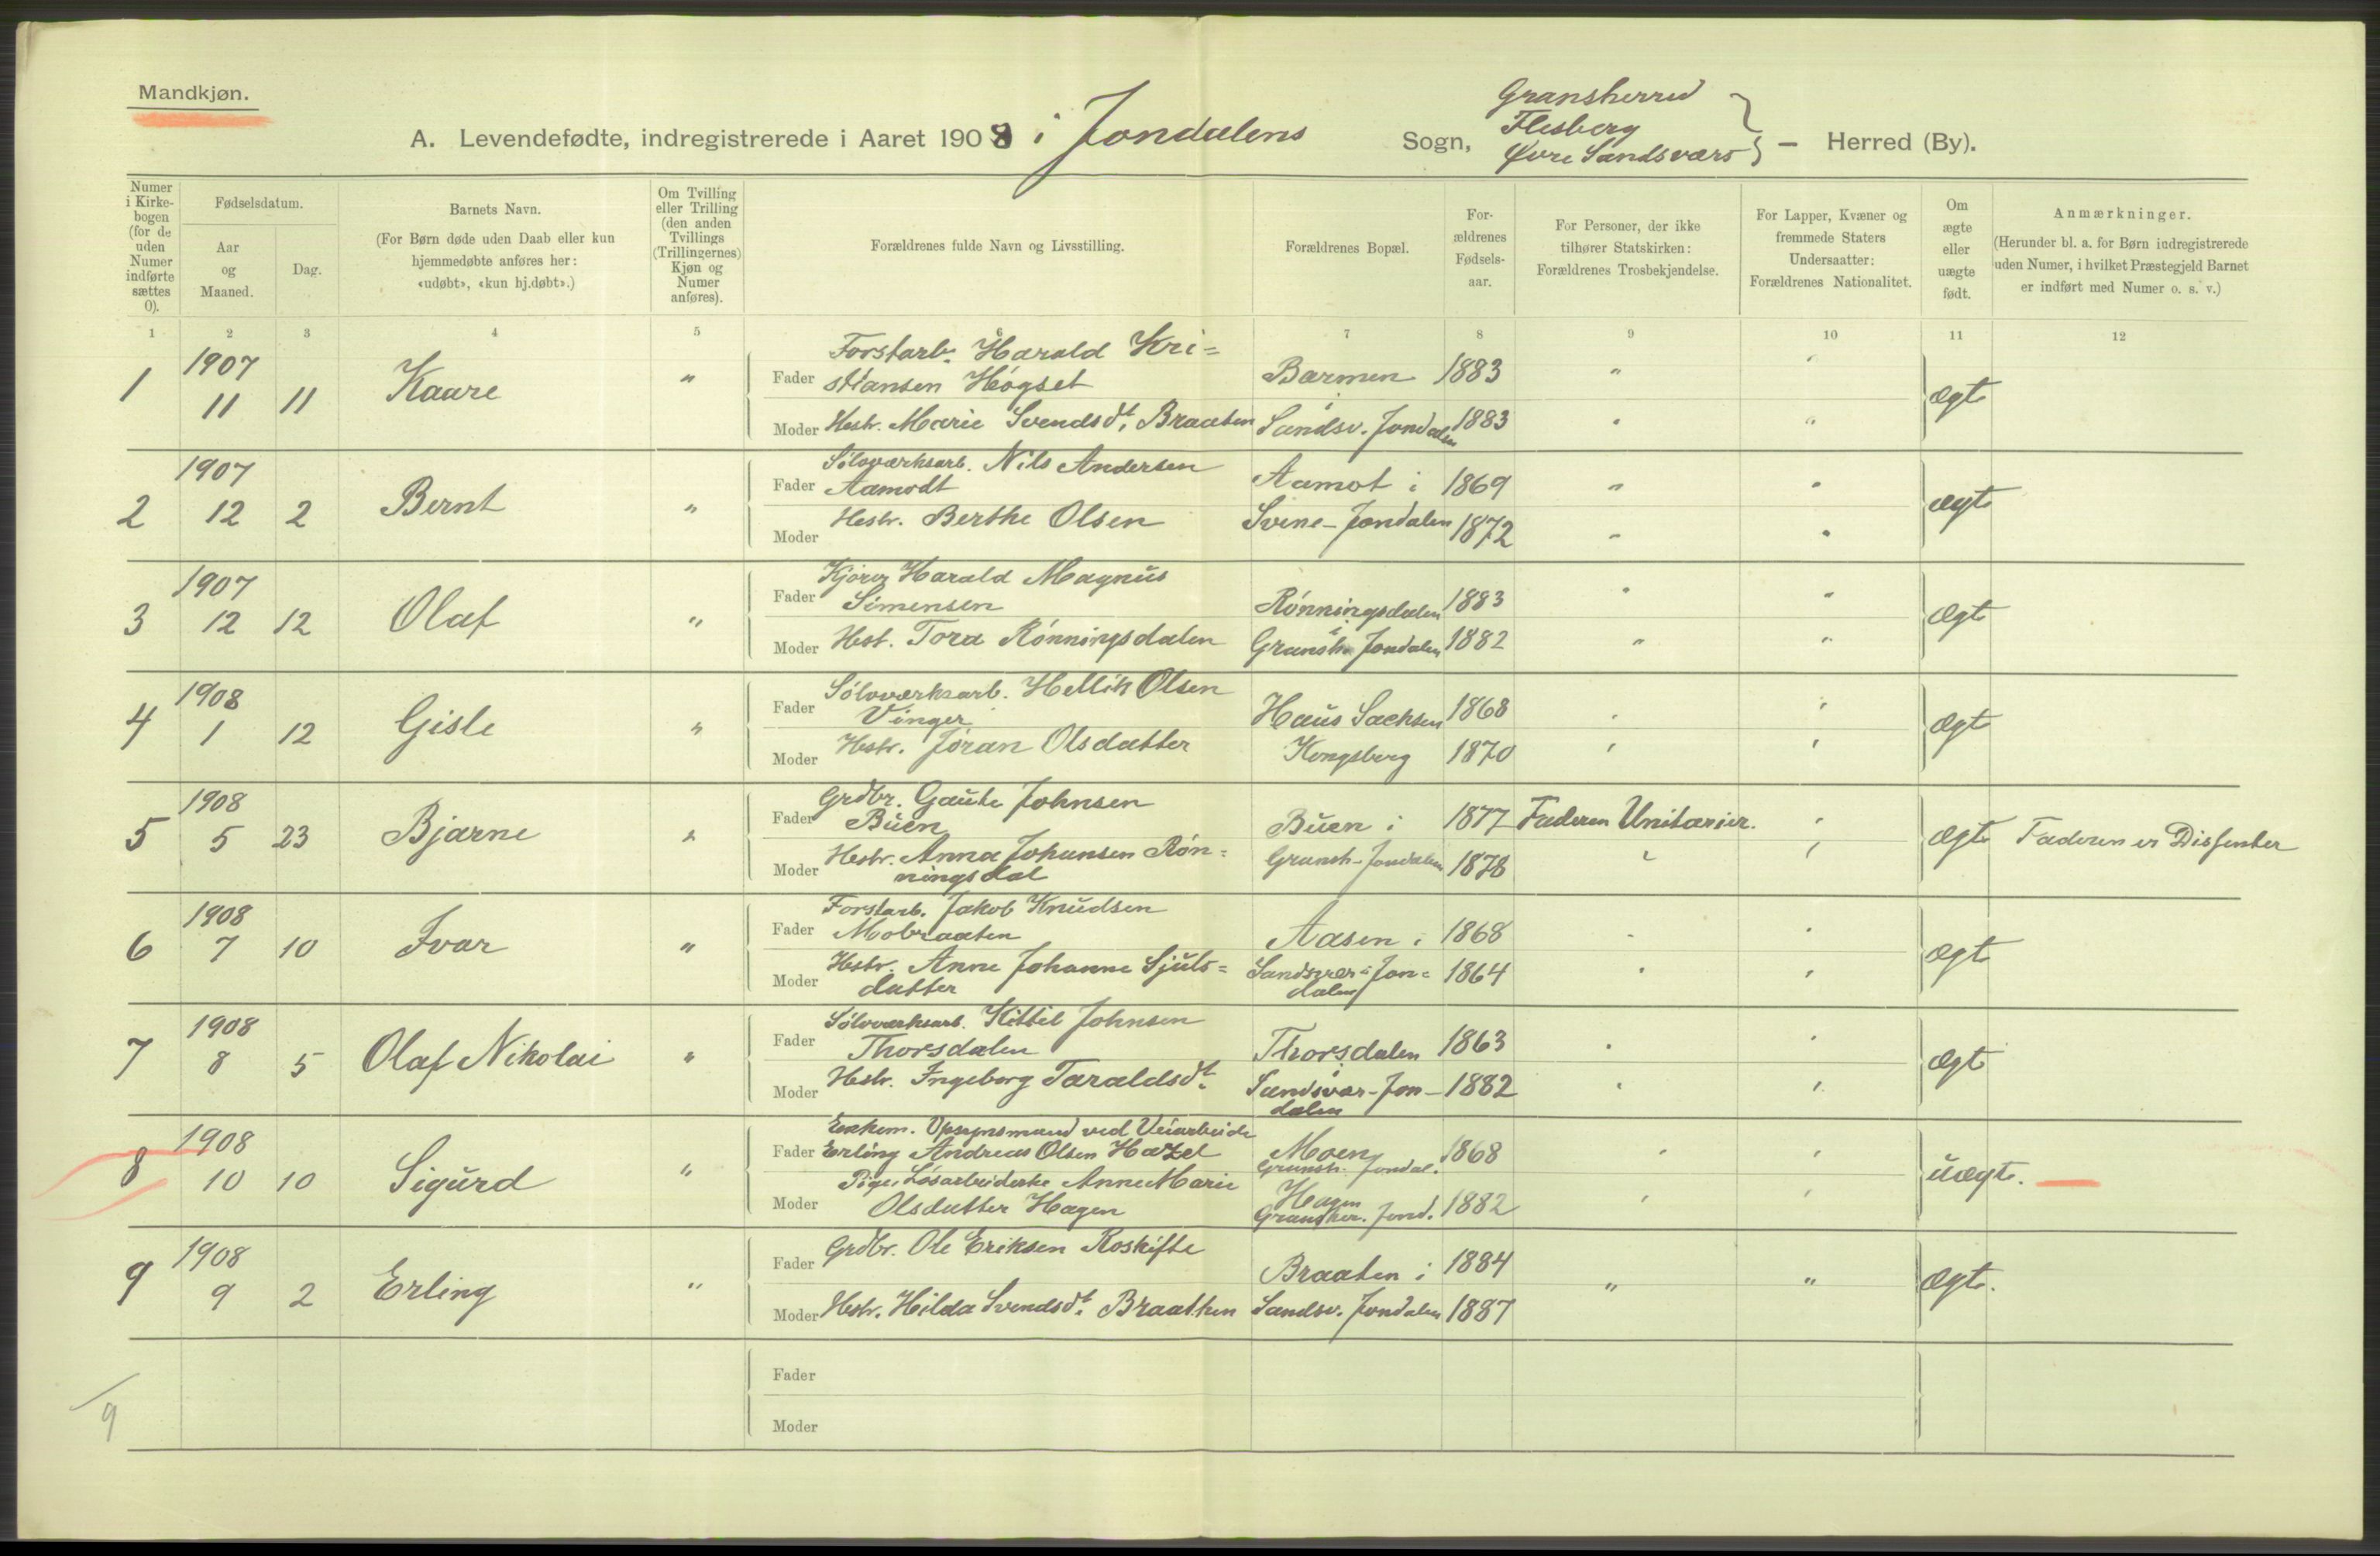 Mandkjøn.
A. Levendefødte, indregistrerede i Aaret 1908 i Jondalens Sogn, Gransherred
Flesberg
Øvre Sandsværs } – Herred (By).
Numer i Kirke-bogen (for de uden Numer indførte sættes 0).
Fødselsdatum.
Aar og Maaned.
Dag.
Barnets Navn.
(For Børn døde uden Daab eller kun hjemmedøbte anføres her: «udøbt», «kun hj.døbt».)
Om Tvilling eller Trilling (den anden Tvillings (Trillingernes) Kjøn og Numer anføres).
Forældrenes fulde Navn og Livsstilling.
Forældrenes Bopæl.
For-ældrenes Fødsels-aar.
For Personer, der ikke tilhører Statskirken: Forældrenes Trosbekjendelse.
For Lapper, Kvæner og fremmede Staters Undersaatter: Forældrenes Nationalitet.
Om ægte eller uægte født.
Anmærkninger.
(Herunder bl. a. for Børn indregistrerede uden Numer, i hvilket Præstegjeld Barnet er indført med Numer o. s. v.)
1 2 3 4 5 7 8 9 10 11 12
1 1907 11 11 Kaare "
Fader Forstarb. Harald Kri=
stiansen Høgset Bærmen i 1883 " "
Moder Hustr. Marie Svendsdt. Braaten Sandsv. Jondalen 1883 " " ægte
2 1907 12 2 Bernt "
Fader Sølvværksarb. Nils Andersen
Aamodt Aamot i 1869 " "
Moder Hustr. Berthe Olsen Svene-Jondalen 1872 " " ægte
3 1907 12 12 Olaf "
Fader Kjører Harald Magnus
Simensen Rønningsdalen i 1883 " "
Moder Hust. Tora Rønningsdalen Gransh. Jondalen 1882 " " ægte
4 1908 1 12 Gisle "
Fader Sølvværksarb. Hellik Olsen
Vinger Haus Sachsen 1868 " "
Moder Hustr. Jøran Olsdatter Kongsberg 1870 " " ægte
5 1908 5 23 Bjarne "
Fader Grdbr. Gaute Johnsen
Buen Buen i 1877 Faderen Unitarier. "
Moder Hustr. Anna Johansen Røn=
ningsdal Gransh-Jondalen 1878 " " ægte Faderen er Dissenter
6 1908 7 10 Ivar "
Fader Forstarb. Jakob Knudsen
Mobraaten Aasen i 1868 " "
Moder Hustr. Anne Johanne Sjuls=
datter Sandsvær-Jon=
dalen 1864 " " ægte
7 1908 8 5 Olaf Nikolai "
Fader Sølvværksarb. Kittil Johnsen
Thorsdalen Thorsdalen i 1863 " "
Moder Hustr. Ingeborg Taraldsdt. Sandsvær-Jon-
dalen 1882 " " ægte
8 1908 10 10 Sigurd "
Fader Enkem. Opsynsmand ved Veiarbeide
Erling Andreas Olsen Hazel Moen
Gransh. Jondal. 1868 " "
Moder Pige, Løsarbeiderske Anne Marie
Olsdatter Hagen Hagen
Gransher. Jond. 1882 " " uægte.
9 1908 9 2 Erling "
Fader Grdbr. Ole Eriksen Roskifte Braaten i 1884
Moder Hustr. Hilda Svendsdt. Braathen Sandsv. Jondalen 1887 " " ægte.
Fader
Moder
9